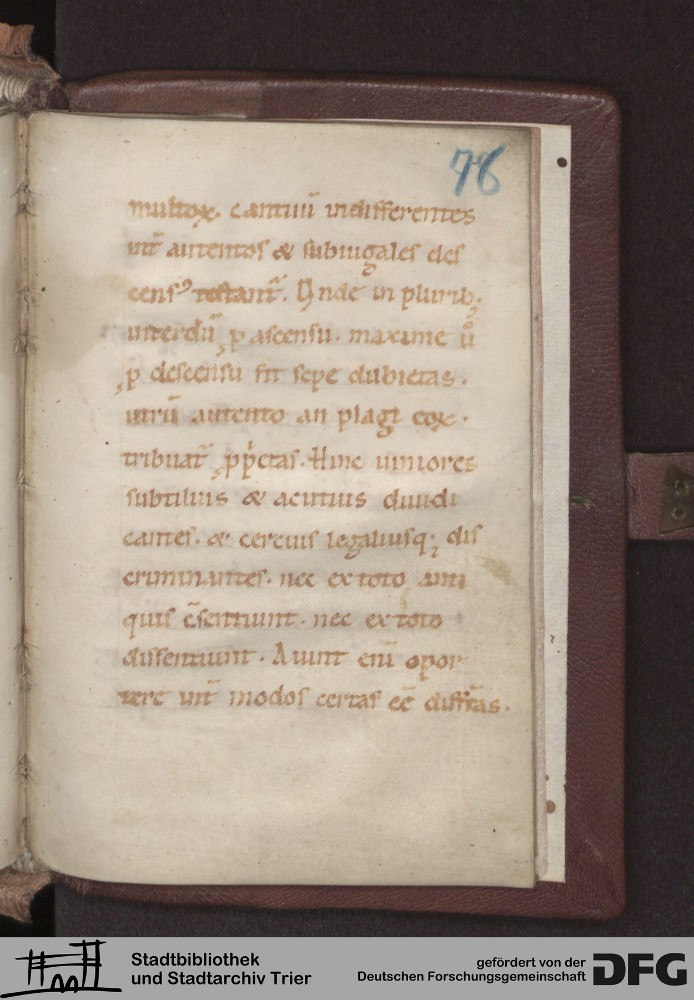 78
multoꝝ. cantuū indifferentes
int̄ autentos & subiugales des
censꝰ testant̄. Vnde in plurib;
interdū ꝑ ascensu. maxime ů
ꝑ descensu fit sepe dubietas.
utrū autento an plagi eoꝝ.
tribuat̄ ꝓp̄etas. Hinc iuniores
subtilius & acutius diiudi
cantes. & certius legaliusq; dis
criminantes. nec ex toto anti
quis c̄sentiunt. nec ex toto
dissentiunt. Aiunt enī opor
tere int̄ modos certas eē diffr̄as.
Stadtbibliothek
und Stadtarchiv Trier
gefördert von der
Deutschen Forschungsgemeinschaft
DFG